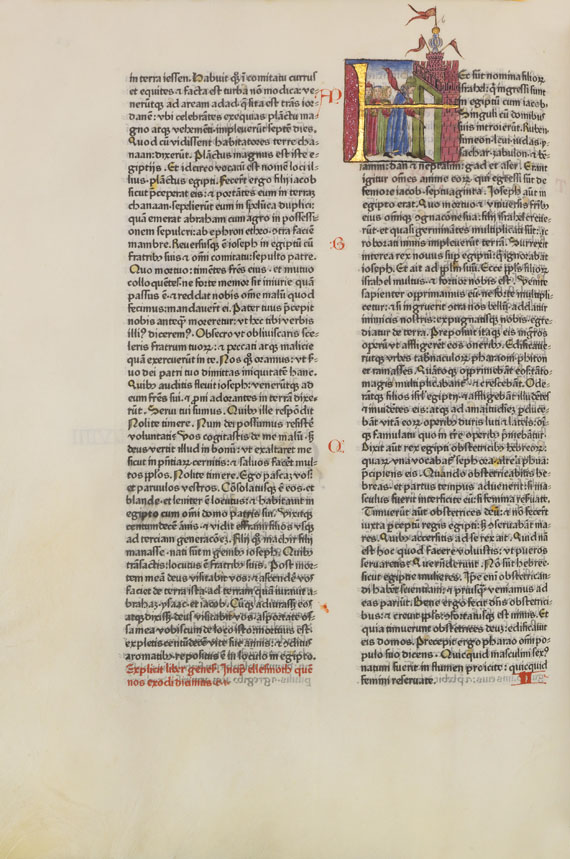 in terra jessen. Habuit qȝ ī comitatu currus
et equites: ⁊ facta est turba nō modica: ve-
nerūtqȝ ad aream adad: q̄ sita est trās ior-
danē: vbi celebrātes exequias plāctu ma
gno atqȝ vehemēti: impleverūt septē dies.
Quod cū vidissent habitatores terre cha-
naan: dixerūt. Plāctus magnus est iste e-
giptijs. Et idcirco vocati est nomē loci il-
lius: plāctus egipti. Fecerūt ergo filij iacob
sicut p̄ceperat eis: ⁊ portātes eum in terrā
chanaan: sepelierūt eum in spelūca duplici:
quā emerat abraham cum agro in possessi-
onem sepulcri: ab ephron etheo: ctra faciē
mambre. Reversusqȝ ē ioseph in egiptū cū
fratribȝ suis ⁊ omī comitatu: sepulto patre.
Quo mortuo: timētes frēs eius: et mutuo
colloquētes: ne forte memor sit iniurie quā
passus ē: ⁊ reddat nobis omē malū quod
fecimus: mandaverūt ei. Pater tuus p̄cepit
nobis anteqȝ moreretur: vt hec tibi verbis
illiȝ diceremȝ. Obsecro vt obliviscaris sce-
leris fratruū tuoȝ: ⁊ peccati atqȝ malicie
quā exercuerūt in te. Nos qȝ oramus: vt s̄-
uo dei patri tuo dimittas iniquitatē hanc.
Quibȝ auditis flevit ioseph: venerūtqȝ ad
eum frēs sui. ⁊ p̄ni adorantes in terrā dixe-
rūt. Servi tui sumus. Quibȝ ille respōdit
Nolite timere. Num dei possumus resistē
voluntati? Vos cogitastis de me malū: sȝ
deus vertit illud in bonū: vt exaltaret me
sicut in p̄ntiarȝ cernitis: ⁊ salvos facēt mul-
tos pp̄los. Nolite timere. Ego pascaȝ vos:
⁊ parvulos vestros. Cōsolatusqȝ ē eos: et
blande ⁊ leniter ē locutus: ⁊ habitavit in
egipto cum omī domo patris sui. Vixitqȝ
centum decē annis: ⁊ vidit effraim filios vsqȝ
ad terciam generationeȝ. Filij qȝ machir filij
manasse: nati sūt in genibȝ ioseph. Quibȝ
trāsactis: locutus ē fratribȝ suis. Post mor
tem meā deus visitabit vos: ⁊ ascendē vos
faciet de terra ista: ad terram quā iuravit a-
brahaȝ ysaac et iacob. Cūqȝ adiurassȝ eos
atqȝ dixissȝ: deus visitabit vos: asportate os-
sa mea vobiscum de loco isto: mortuus est:
expletis centū decē vite sue annis: ⁊ cōditus
aromatibȝ: repositus ē in loculo in egipto.
Explicit liber genesȝ. Incip ellesmoth quē
nos exodū dicimus
Hec sūt nomina filioȝ
israhel: qȝ ingressi sunt
in egiptū cum iacob.
Singuli cū domibus
suis introierūt. Ruben.
simeon. levi. iudas. ysa
char. zabulon. ⁊ be-
iamin: dan ⁊ neptalim: gad et aser. Erant
igitur omēs anime eorȝ qui egressi sunt de
femore iacob: septuaginta. Ioseph aūt in
egipto erat. Quo mortuo ⁊ vniversis fribȝ
eius omiqȝ cognacōne sua: filij israhel creve-
rūt: et quasi germinātes multiplicati sunt: ac
roborati nimis impleverūt terrā. Surrexit
interea rex novus sup egiptū: qȝ ignorabat
ioseph. Et ait ad pp̄lm suū. Ecce pp̄ls filioȝ
israhel multus: ⁊ fortior nobis est. Venite
sapienter opprimamus eū: ne forte multipli-
cetur: ⁊ si ingruerit ctra nos bellū: addatur
inimicis nostris: expugnatisqȝ nobis egre-
diatur de terra. Preposuit itaqȝ eis mgros
operū: vt affligerēt eos oneribȝ. Edificave-
rūtqȝ vrbes tabnaculoȝ pharaoni: phiton
et ramasses. Quātoqȝ opprimebāt eos: tāto
magis multiplicabanȝ: ⁊ crescebāt. Ode-
rātqȝ filios isrl egiptij: ⁊ affligebāt illudētes
⁊ invidētes eis: atqȝ ad amaritudinēȝ p̄duce-
bāt vitā eorȝ: operibȝ duris luti ⁊ lateris: oīqȝ
famulatu quo in tre operibȝ p̄mebātur.
Dixit aūt rex egipti obstetricibȝ hebreorȝ:
quarȝ vna vocabaȝ sephora: altera phua:
p̄cipiens eis. Quando obstetricabitis he
breas: et partus tempus advenerit: si ma-
sculus fuerit interficite eū: si femina reservate.
Timuerūt aūt obstetrices deū: ⁊ nō fecerūt
iuxta p̄ceptū regis egipti: sȝ cōservabāt ma-
res. Quibȝ accersitis ad se rex ait. Quid nā
est hoc quod facere voluistis: vt pueros
servaretis? Que rn̄derunt. Nō sūt hebree:
sicut egiptie mulieres. Ipe enī obstetrican-
di habēt scientiam: ⁊ priusqȝ veniamus ad
eas pariūt. Bene ergo fecit dn̄s obstetrici-
bus: ⁊ crevit pp̄ls: cōfortatusqȝ est nimis. Et
quia timuerunt obstetrices deuȝ: edificavit
eis domos. Precepit ergo pharao omi po-
pulo suo dicens. Quicquid masculini sexȝ
natum fuerit in flumen proicite: quicquid
femini reservate.